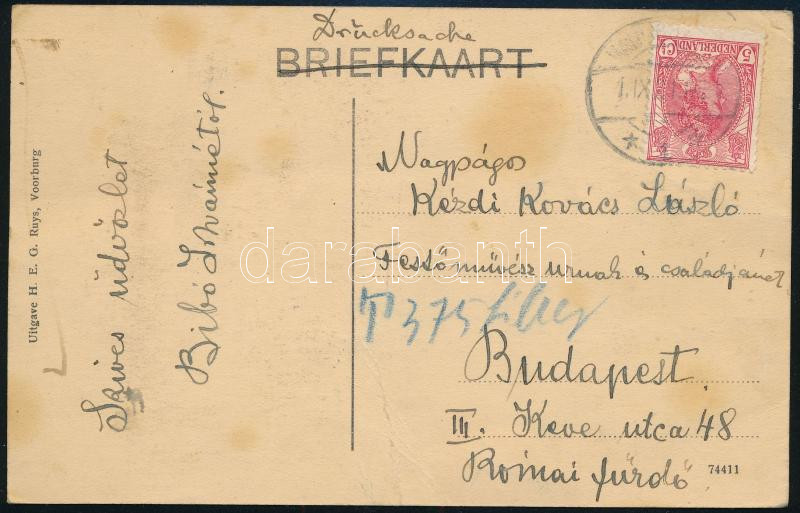 Drucksache
BRIEFKAART
5 Ct
NEDERLAND
Szives üdvözlet
Bibó Istvánnétól.
Nagyságos
Kézdi Kovács László
Festőművész urnak és családjának
T 375 fillér
Budapest
III. Keve utca 48
Római fürdő.
74411
Uitgave H. E. G. Ruys, Voorburg
darabanth